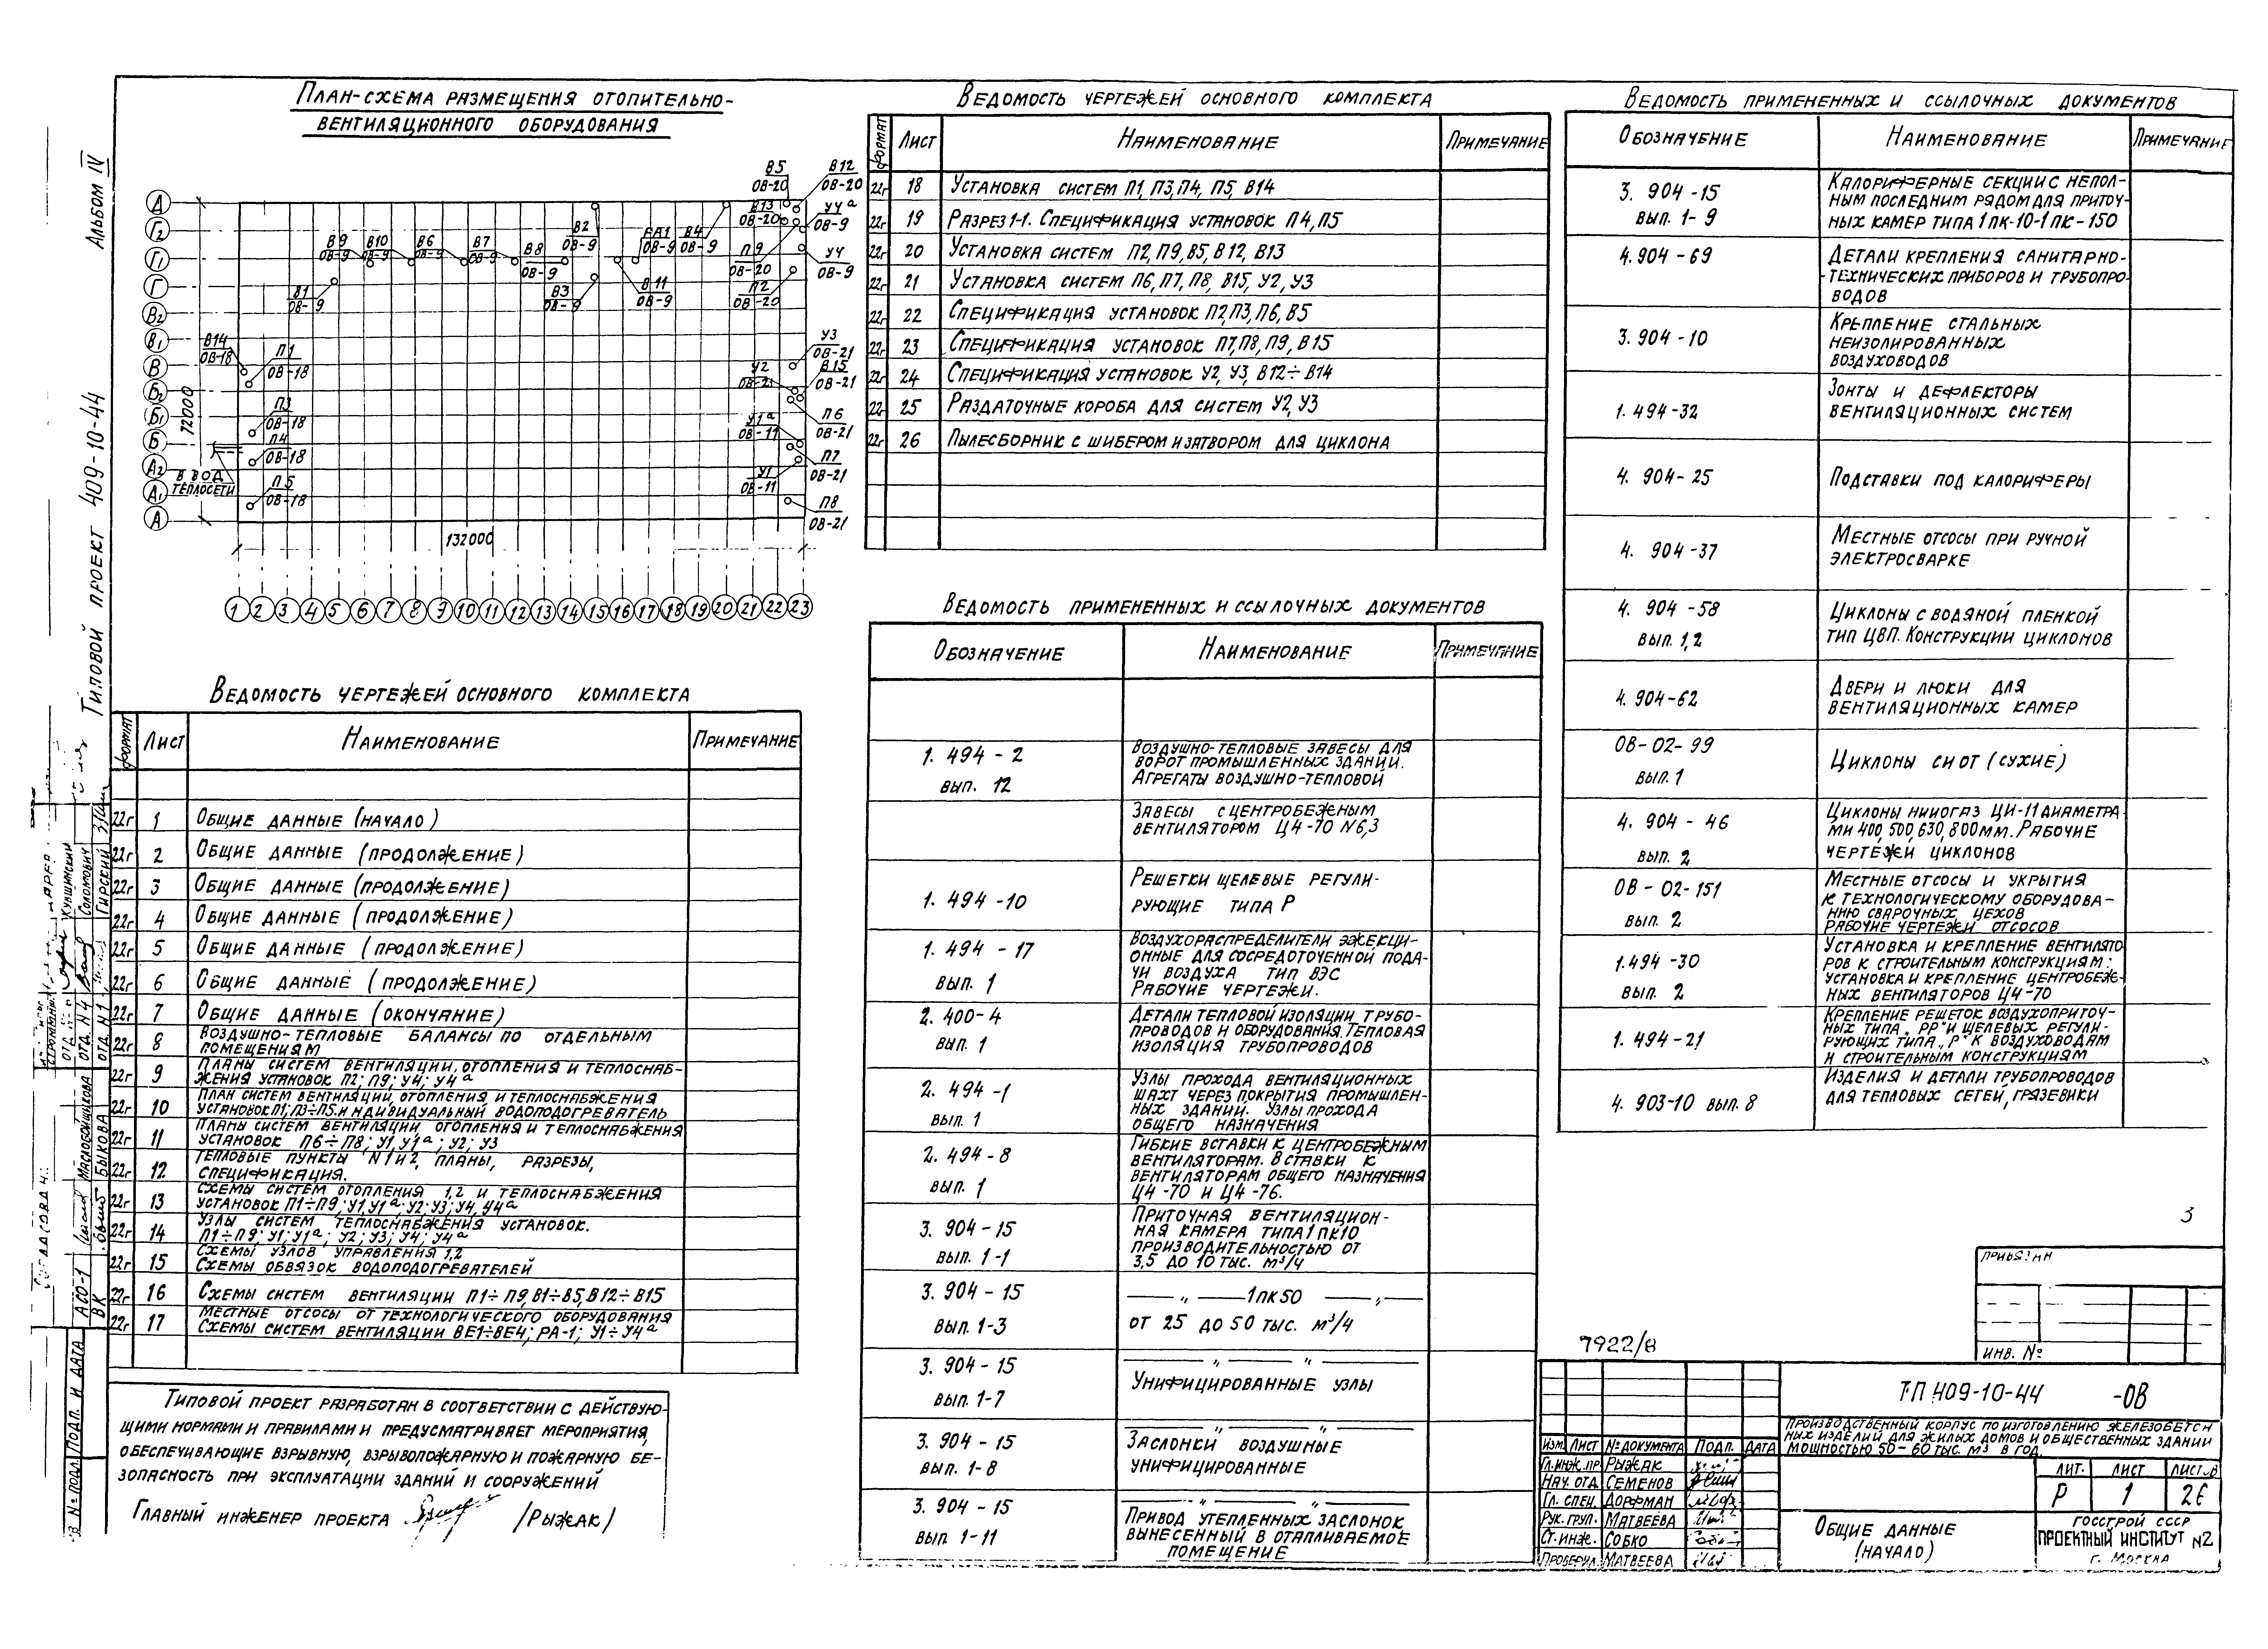 План-схема размещения отопительно-
вентиляционного оборудования
Альбом IV
Типовой проект 409-10-44
А
Г2
Г1
Г
В2
В1
В
Б2
Б1
Б
А2
А1
А
72000
132000
В5
ОВ-20
В12
ОВ-20
В13
ОВ-20
У4а
ОВ-9
У4
ОВ-9
П9
ОВ-20
П2
ОВ-20
В9
ОВ-9
В10
ОВ-9
В6
ОВ-9
В7
ОВ-9
В8
ОВ-9
В2
ОВ-9
ОВ-9
В4
ОВ-9
В1
ОВ-9
В3
ОВ-9
В11
ОВ-9
В14
ОВ-18
П1
ОВ-18
П3
ОВ-18
П4
ОВ-18
П5
ОВ-18
Ввод
теплосети
У3
ОВ-21
У2
ОВ-21
В15
ОВ-21
П6
ОВ-21
У1а
ОВ-11
П7
ОВ-21
У1
ОВ-11
П8
ОВ-21
1 2 3 4 5 6 7 8 9 10 11 12 13 14 15 16 17 18 19 20 21 22 23
Ведомость чертежей основного комплекта
Формат Лист Наименование Примечание
22г 1 Общие данные (начало)
22г 2 Общие данные (продолжение)
22г 3 Общие данные (продолжение)
22г 4 Общие данные (продолжение)
22г 5 Общие данные (продолжение)
22г 6 Общие данные (продолжение)
22г 7 Общие данные (окончание)
22г 8 Воздушно-тепловые балансы по отдельным
помещениям
22г 9 Планы систем вентиляции, отопления и теплоснаб-
жения установок П2; П9; У4; У4а
22г 10 План систем вентиляции, отопления и теплоснабжения
установок П1; П3÷П5. Индивидуальный водоподогреватель
22г 11 Планы систем вентиляции, отопления и теплоснабжения
установок П6÷П8; У1, У1а; У2; У3
22г 12 Тепловые пункты N1 и 2, планы, разрезы,
спецификация.
22г 13 Схемы систем отопления 1,2 и теплоснабжения
установок П1÷П9; У1, У1а; У2; У3; У4, У4а
22г 14 Узлы систем теплоснабжения установок.
П1÷П9; У1; У1а; У2; У3; У4; У4а
22г 15 Схемы узлов управления 1,2
Схемы обвязок водоподогревателей
22г 16 Схемы систем вентиляции П1÷П9, В1÷В5, В12÷В15
22г 17 Местные отсосы от технологического оборудования
Схемы систем вентиляции ВЕ1÷ВЕ4; РА-1; У1÷У4а
Типовой проект разработан в соответствии с действую-
щими нормами и правилами и предусматривает мероприятия,
обеспечивающие взрывную, взрывопожарную и пожарную бе-
зопасность при эксплуатации зданий и сооружений
Главный инженер проекта /Рыжак/
Ведомость чертежей основного комплекта
Формат Лист Наименование Примечание
22г 18 Установка систем П1, П3, П4, П5, В14
22г 19 Разрез 1-1. Спецификация установок П4, П5
22г 20 Установка систем П2, П9, В5, В12, В13
22г 21 Установка систем П6, П7, П8, В15, У2, У3
22г 22 Спецификация установок П2, П3, П6, В5
22г 23 Спецификация установок П7, П8, П9, В15
22г 24 Спецификация установок У2, У3, В12÷В14
22г 25 Раздаточные короба для систем У2, У3
22г 26 Пылесборник с шибером и затвором для циклона
Ведомость примененных и ссылочных документов
Обозначение Наименование Примечание
1.494-2 вып. 12
Воздушно-тепловые завесы для
ворот промышленных зданий.
Агрегаты воздушно-тепловой
Завесы с центробежным
вентилятором Ц4-70 N6,3
1.494-10
Решетки щелевые регули-
рующие типа Р
1.494-17 вып. 1
Воздухораспределители эжекци-
онные для сосредоточенной пода-
чи воздуха тип ВЭС
Рабочие чертежи.
2.400-4 вып. 1
Детали тепловой изоляции трубо-
проводов и оборудования. Тепловая
изоляция трубопроводов
2.494-1 вып. 1
Узлы прохода вентиляционных
шахт через покрытия промышлен-
ных зданий. Узлы прохода
общего назначения
2.494-8 вып. 1
Гибкие вставки к центробежным
вентиляторам. Вставки к
вентиляторам общего назначения
Ц4-70 и Ц4-76.
3.904-15 вып. 1-1
Приточная вентиляцион-
ная камера типа 1ПК10
производительностью от
3,5 до 10 тыс. м³/ч
3.904-15 вып. 1-3
— „ — 1ПК50 — „ —
от 25 до 50 тыс. м³/ч
3.904-15 вып. 1-7
— „ — „ —
Унифицированные узлы
3.904-15 вып. 1-8
— „ — „ —
Заслонки воздушные
унифицированные
3.904-15 вып 1-11
— „ — „ —
Привод утепленных заслонок
вынесенный в отапливаемое
помещение
Ведомость примененных и ссылочных документов
Обозначение Наименование Примечание
3.904-15 вып. 1-9
Калориферные секции с непол-
ным последним рядом для приточ-
ных камер типа 1ПК-10-1ПК-150
4.904-69
Детали крепления санитарно-
технических приборов и трубопро-
водов
3.904-10
Крепление стальных
неизолированных
воздуховодов
1.494-32
Зонты и дефлекторы
вентиляционных систем
4.904-25
Подставки под калориферы
4.904-37
Местные отсосы при ручной
электросварке
4.904-58 вып. 1,2
Циклоны с водяной пленкой
тип ЦВП. Конструкции циклонов
4.904-62
Двери и люки для
вентиляционных камер
ОВ-02-99 вып. 1
Циклоны СИОТ (сухие)
4.904-46 вып. 2
Циклоны НИИОГАЗ ЦИ-11 диаметра-
ми 400, 500, 630, 800мм. Рабочие
чертежи циклонов
ОВ-02-151 вып. 2
Местные отсосы и укрытия
к технологическому оборудова-
нию сварочных цехов
Рабочие чертежи отсосов
1.494-30 вып. 2
Установка и крепление вентилято
ров к строительным конструкциям.
Установка и крепление центробеж-
ных вентиляторов Ц4-70
1.494-21
Крепление решеток воздухоприточ-
ных типа „РР" и щелевых регули-
рующих типа „Р" к воздуховодам
и строительным конструкциям
4.903-10 вып. 8
Изделия и детали трубопроводов
для тепловых сетей, грязевики
3
Привязан
Инв. №
7922/8
ТП 409-10-44 -ОВ
Производственный корпус по изготовлению железобетон
ных изделий для жилых домов и общественных зданий
мощностью 50-60 тыс. м³ в год.
Изм. Лист № документа Подп. Дата
Гл.инж.пр. Рыжак
Нач. отд. Семенов
Гл. спец. Дорфман
Рук. груп. Матвеева
Ст. инж. Собко
Проверил Матвеева
Лит. Лист Листов
Р 1 26
Общие данные
(начало)
Госстрой СССР
Проектный институт №2
г. Москва
Кувшинский
Соломович
Гирский
Отд. N4
Отд. N1
Маслобойщикова
Быкова
АСО-1
ВК
Подп. и дата
№ подл.